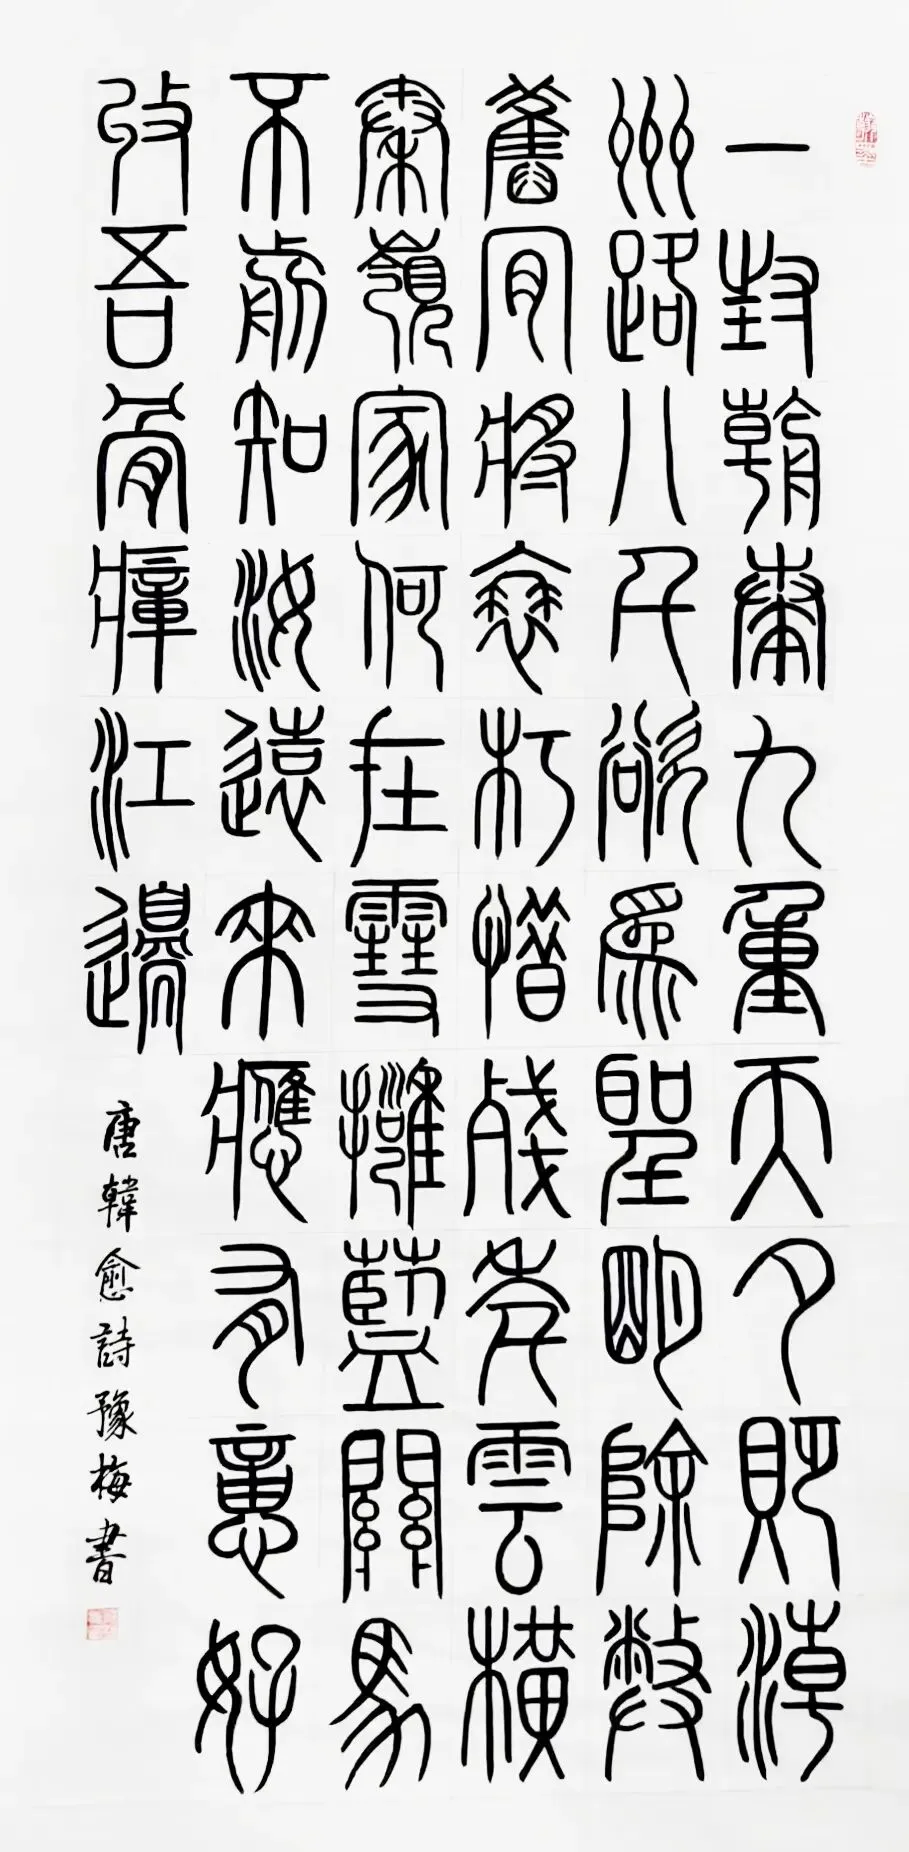 一封朝奏九重天夕貶潮
州路八千欲為聖明除弊
舊肯將衰朽惜殘年雲橫
秦嶺家何在雪擁藍關馬
不前知汝遠來應有意好
收吾骨瘴江邊
唐韓愈詩豫梅書